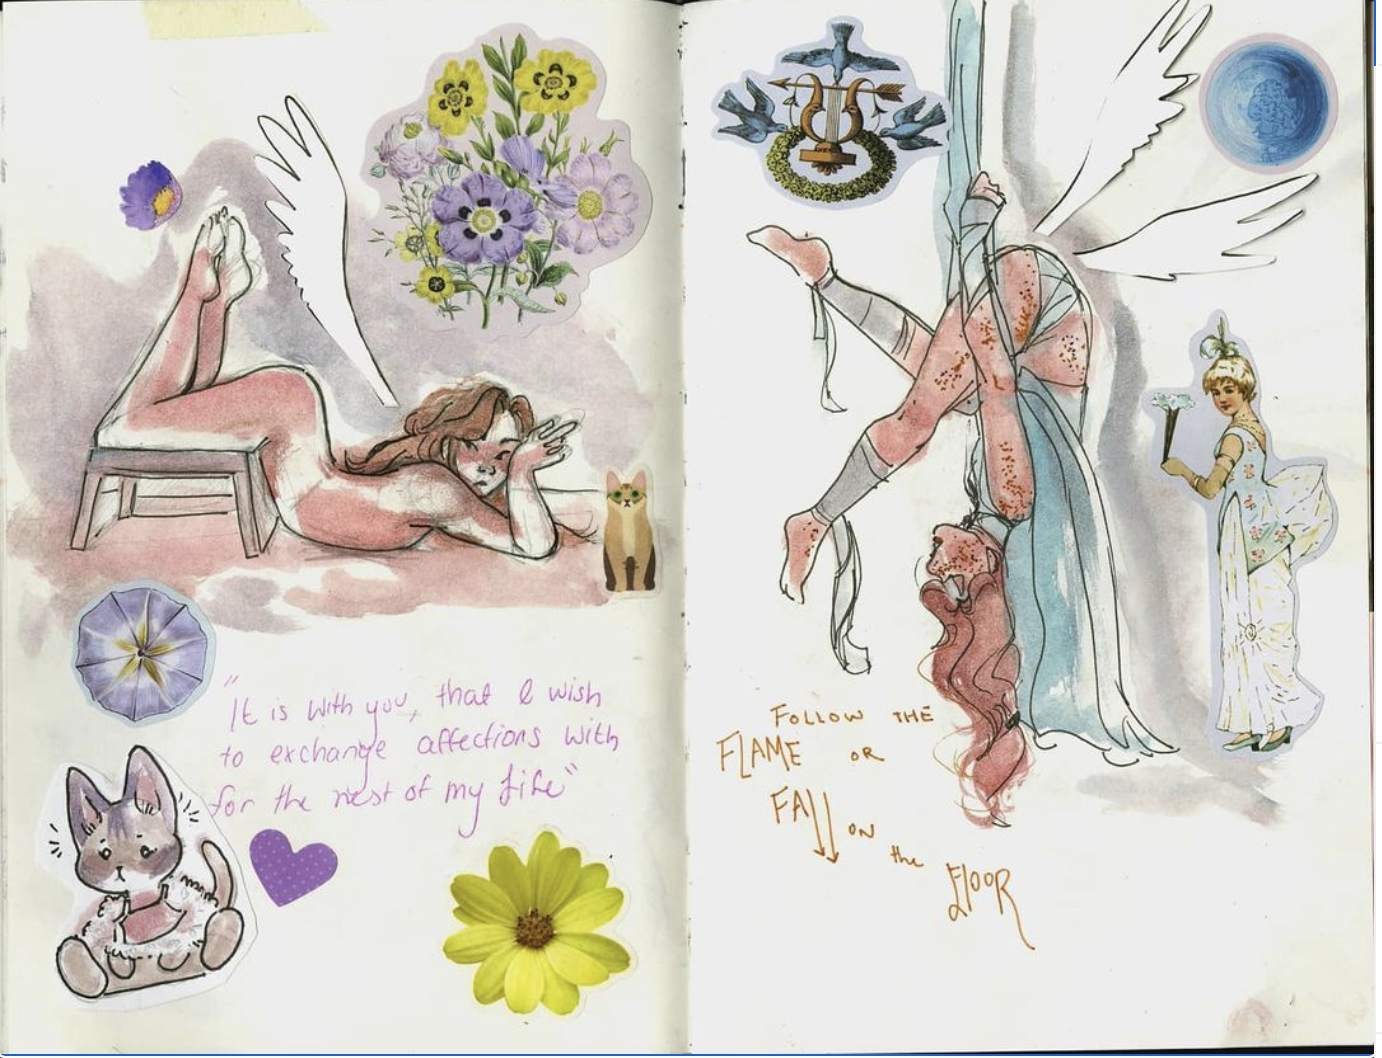 "It is with you, that I wish
to exchange affections with
for the rest of my life"
FOLLOW THE
FLAME OR
FAll ON
the
FlOOR